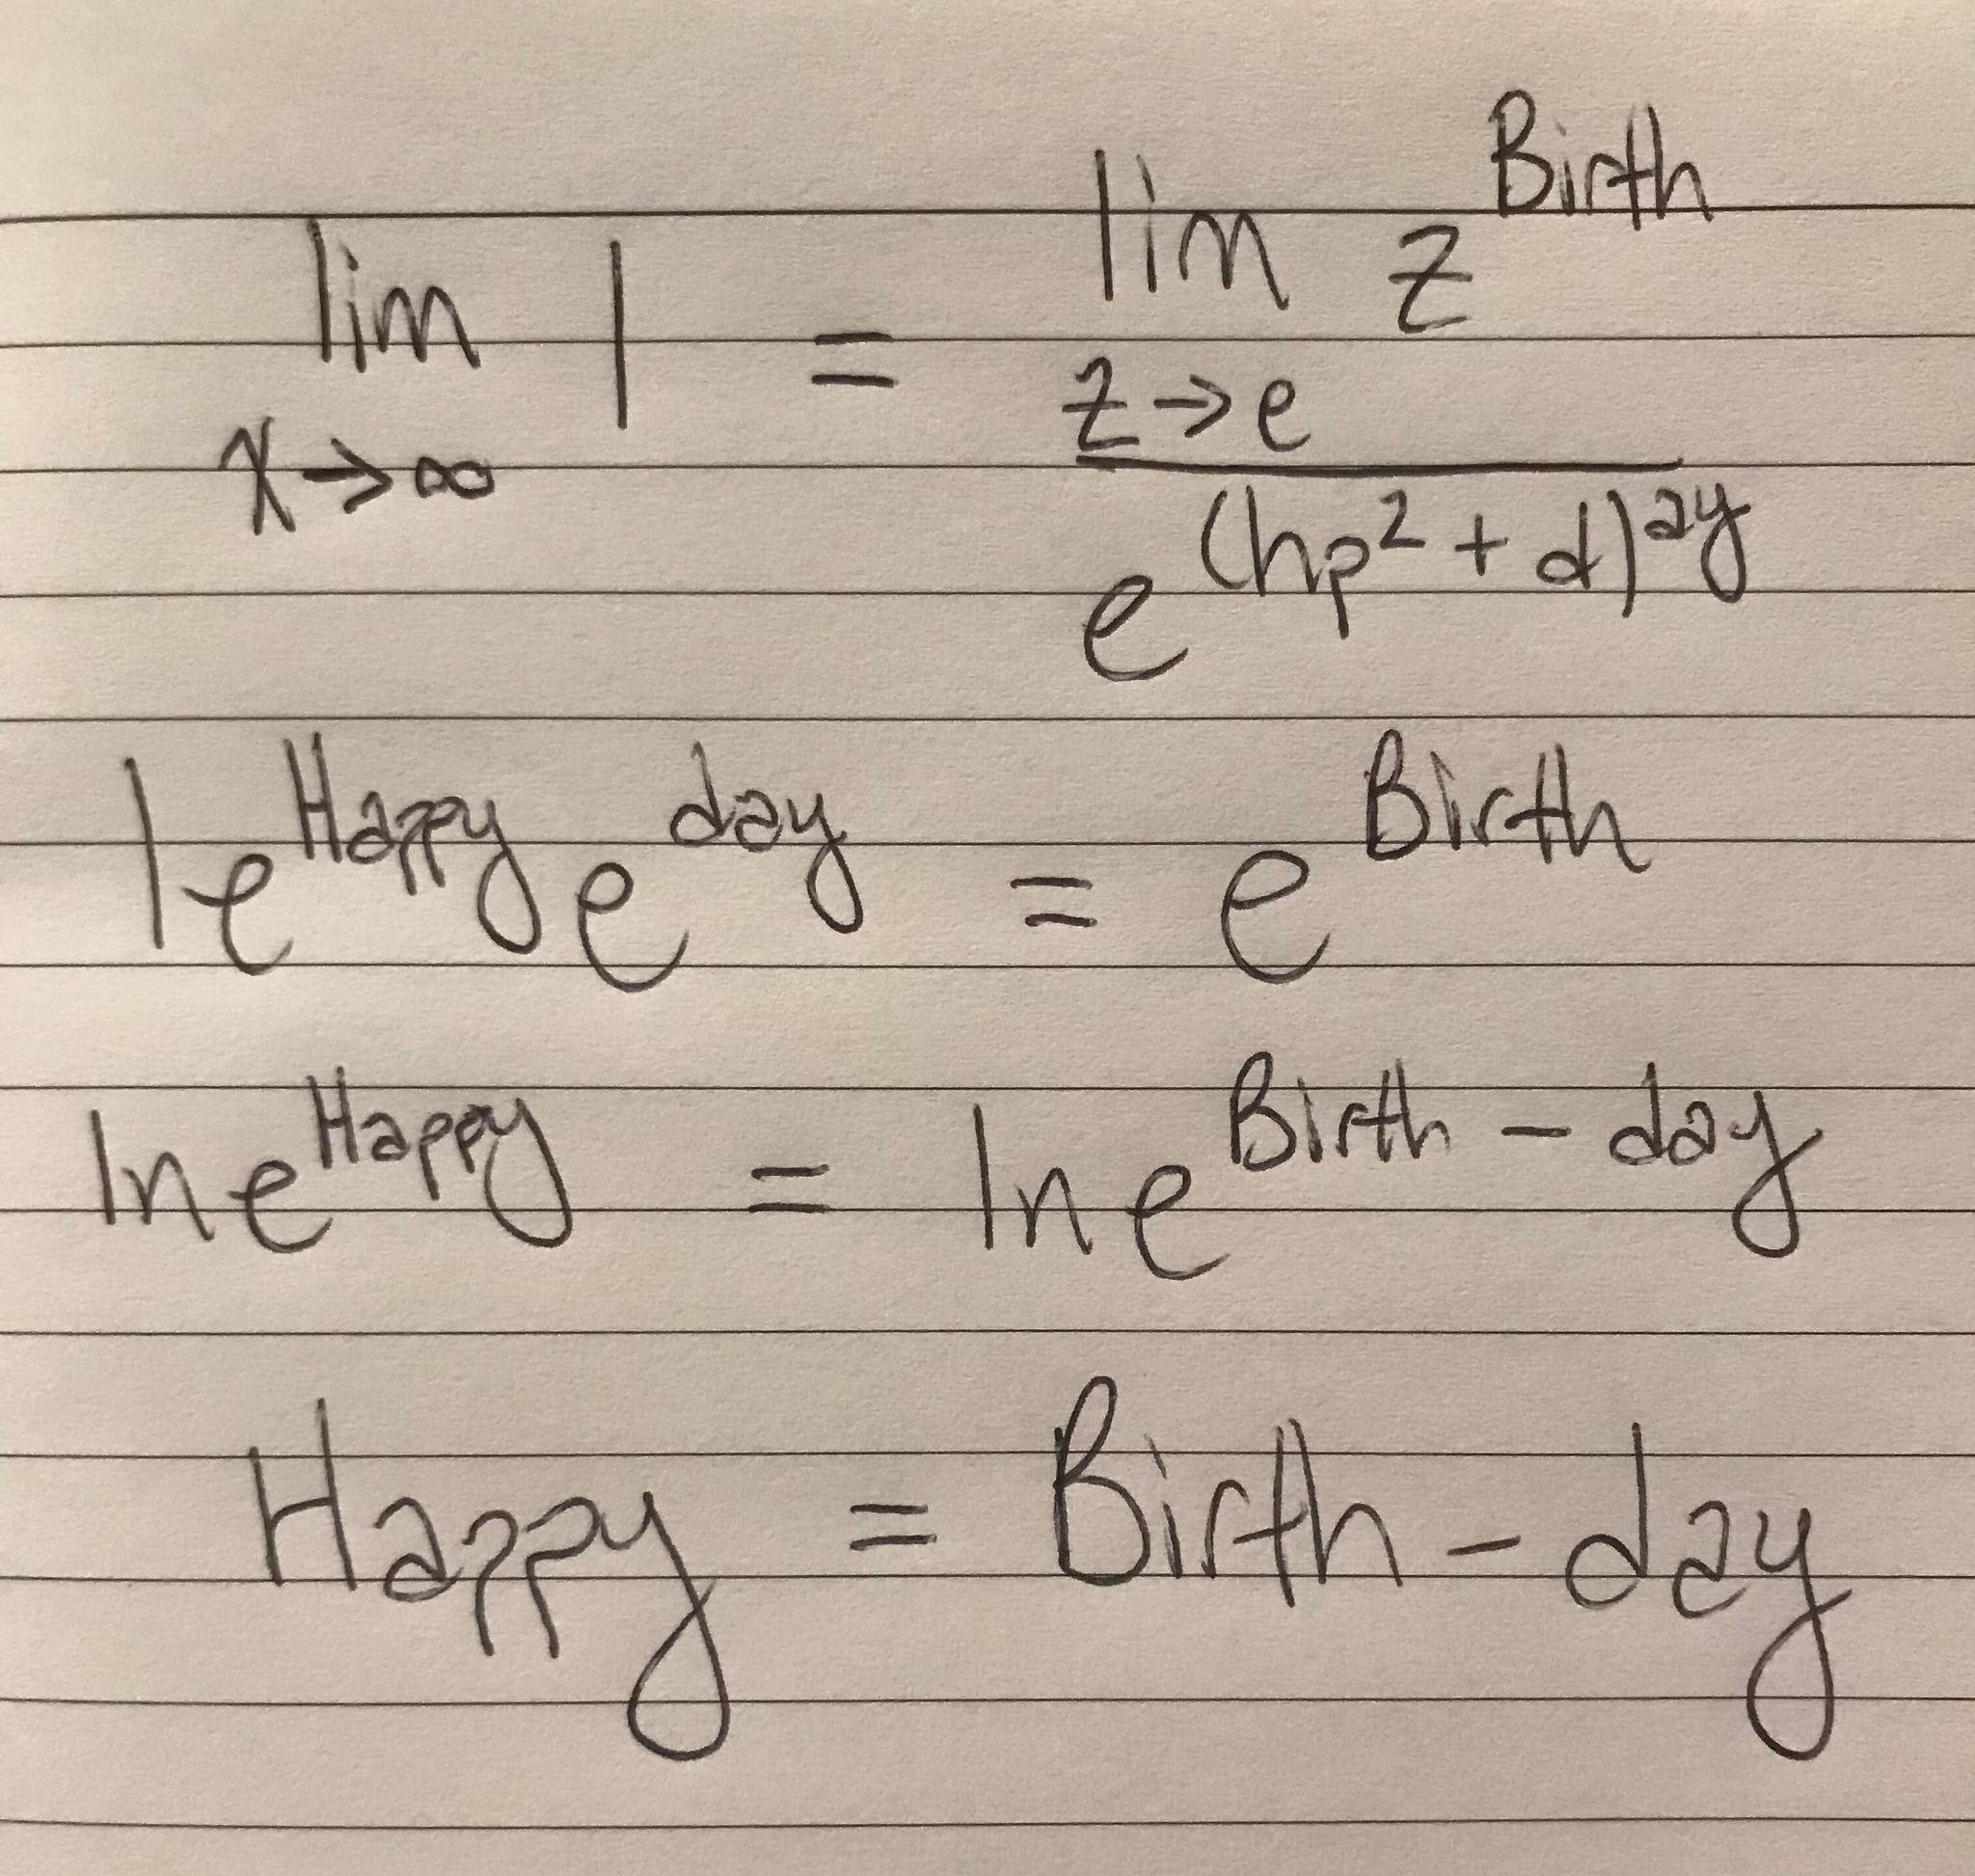 lim 1 = lim z^Birth
x→∞ z→e
e^(hp²+d)ay
1e^Happy e^day = e^Birth
ln e^Happy = ln e^Birth - day
Happy = Birth - day